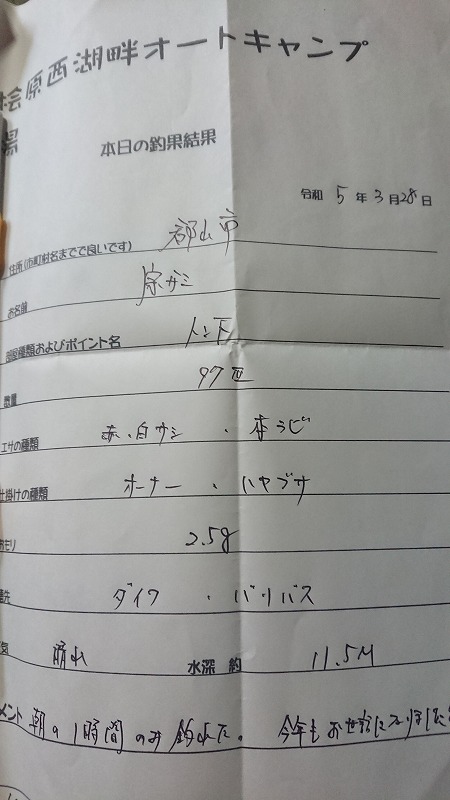 桧原西湖畔オートキャンプ
本日の釣果結果
令和 5 年 3 月 28 日
住所(市町村名までで良いです) 郡山市
お名前
および ポイント名
数量 97匹
エサの種類 赤、白サシ ・ 本ラビ
仕掛けの種類 オーナー ・ ハヤブサ
おもり 2.5g
穂先 ダイワ ・ バリバス
晴れ 水深 約 11.5M
メント 朝の1時間のみ釣れた。 今年もお世話になりました